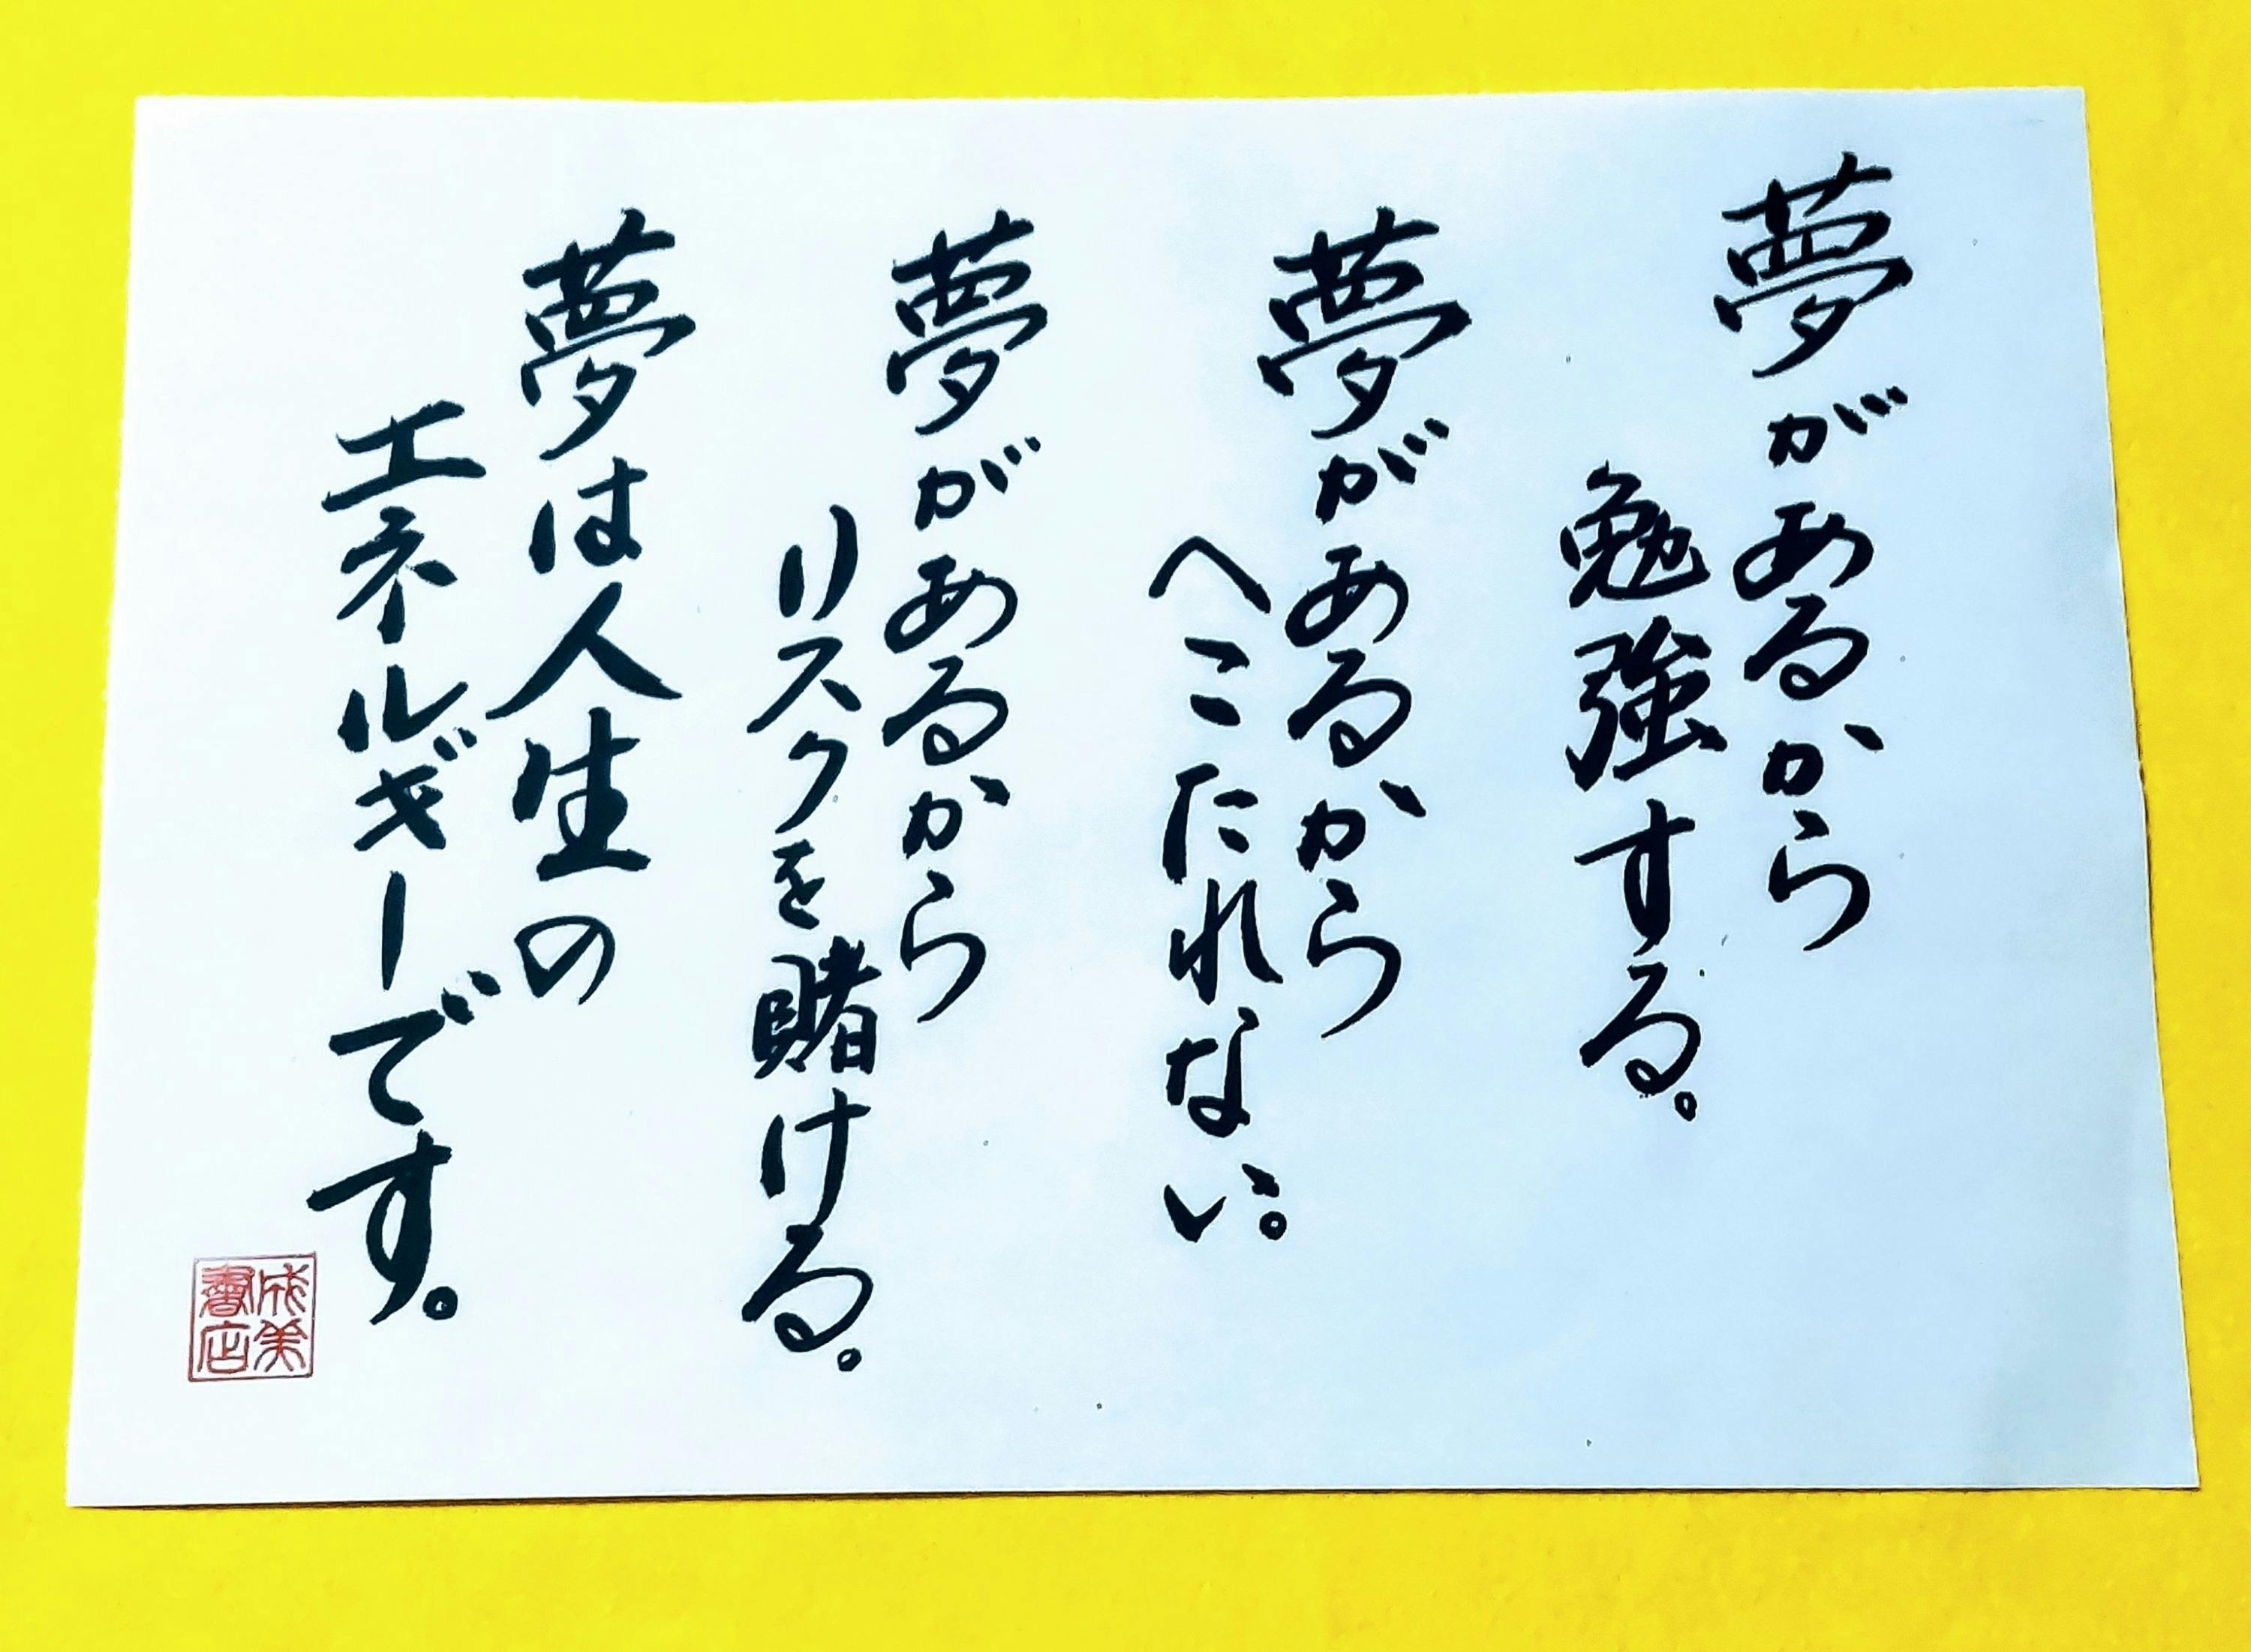 夢があるから
勉強する。
夢があるから
へこたれない。
夢があるから
リスクを賭ける。
夢は人生の
エネルギーです。
成美
書店